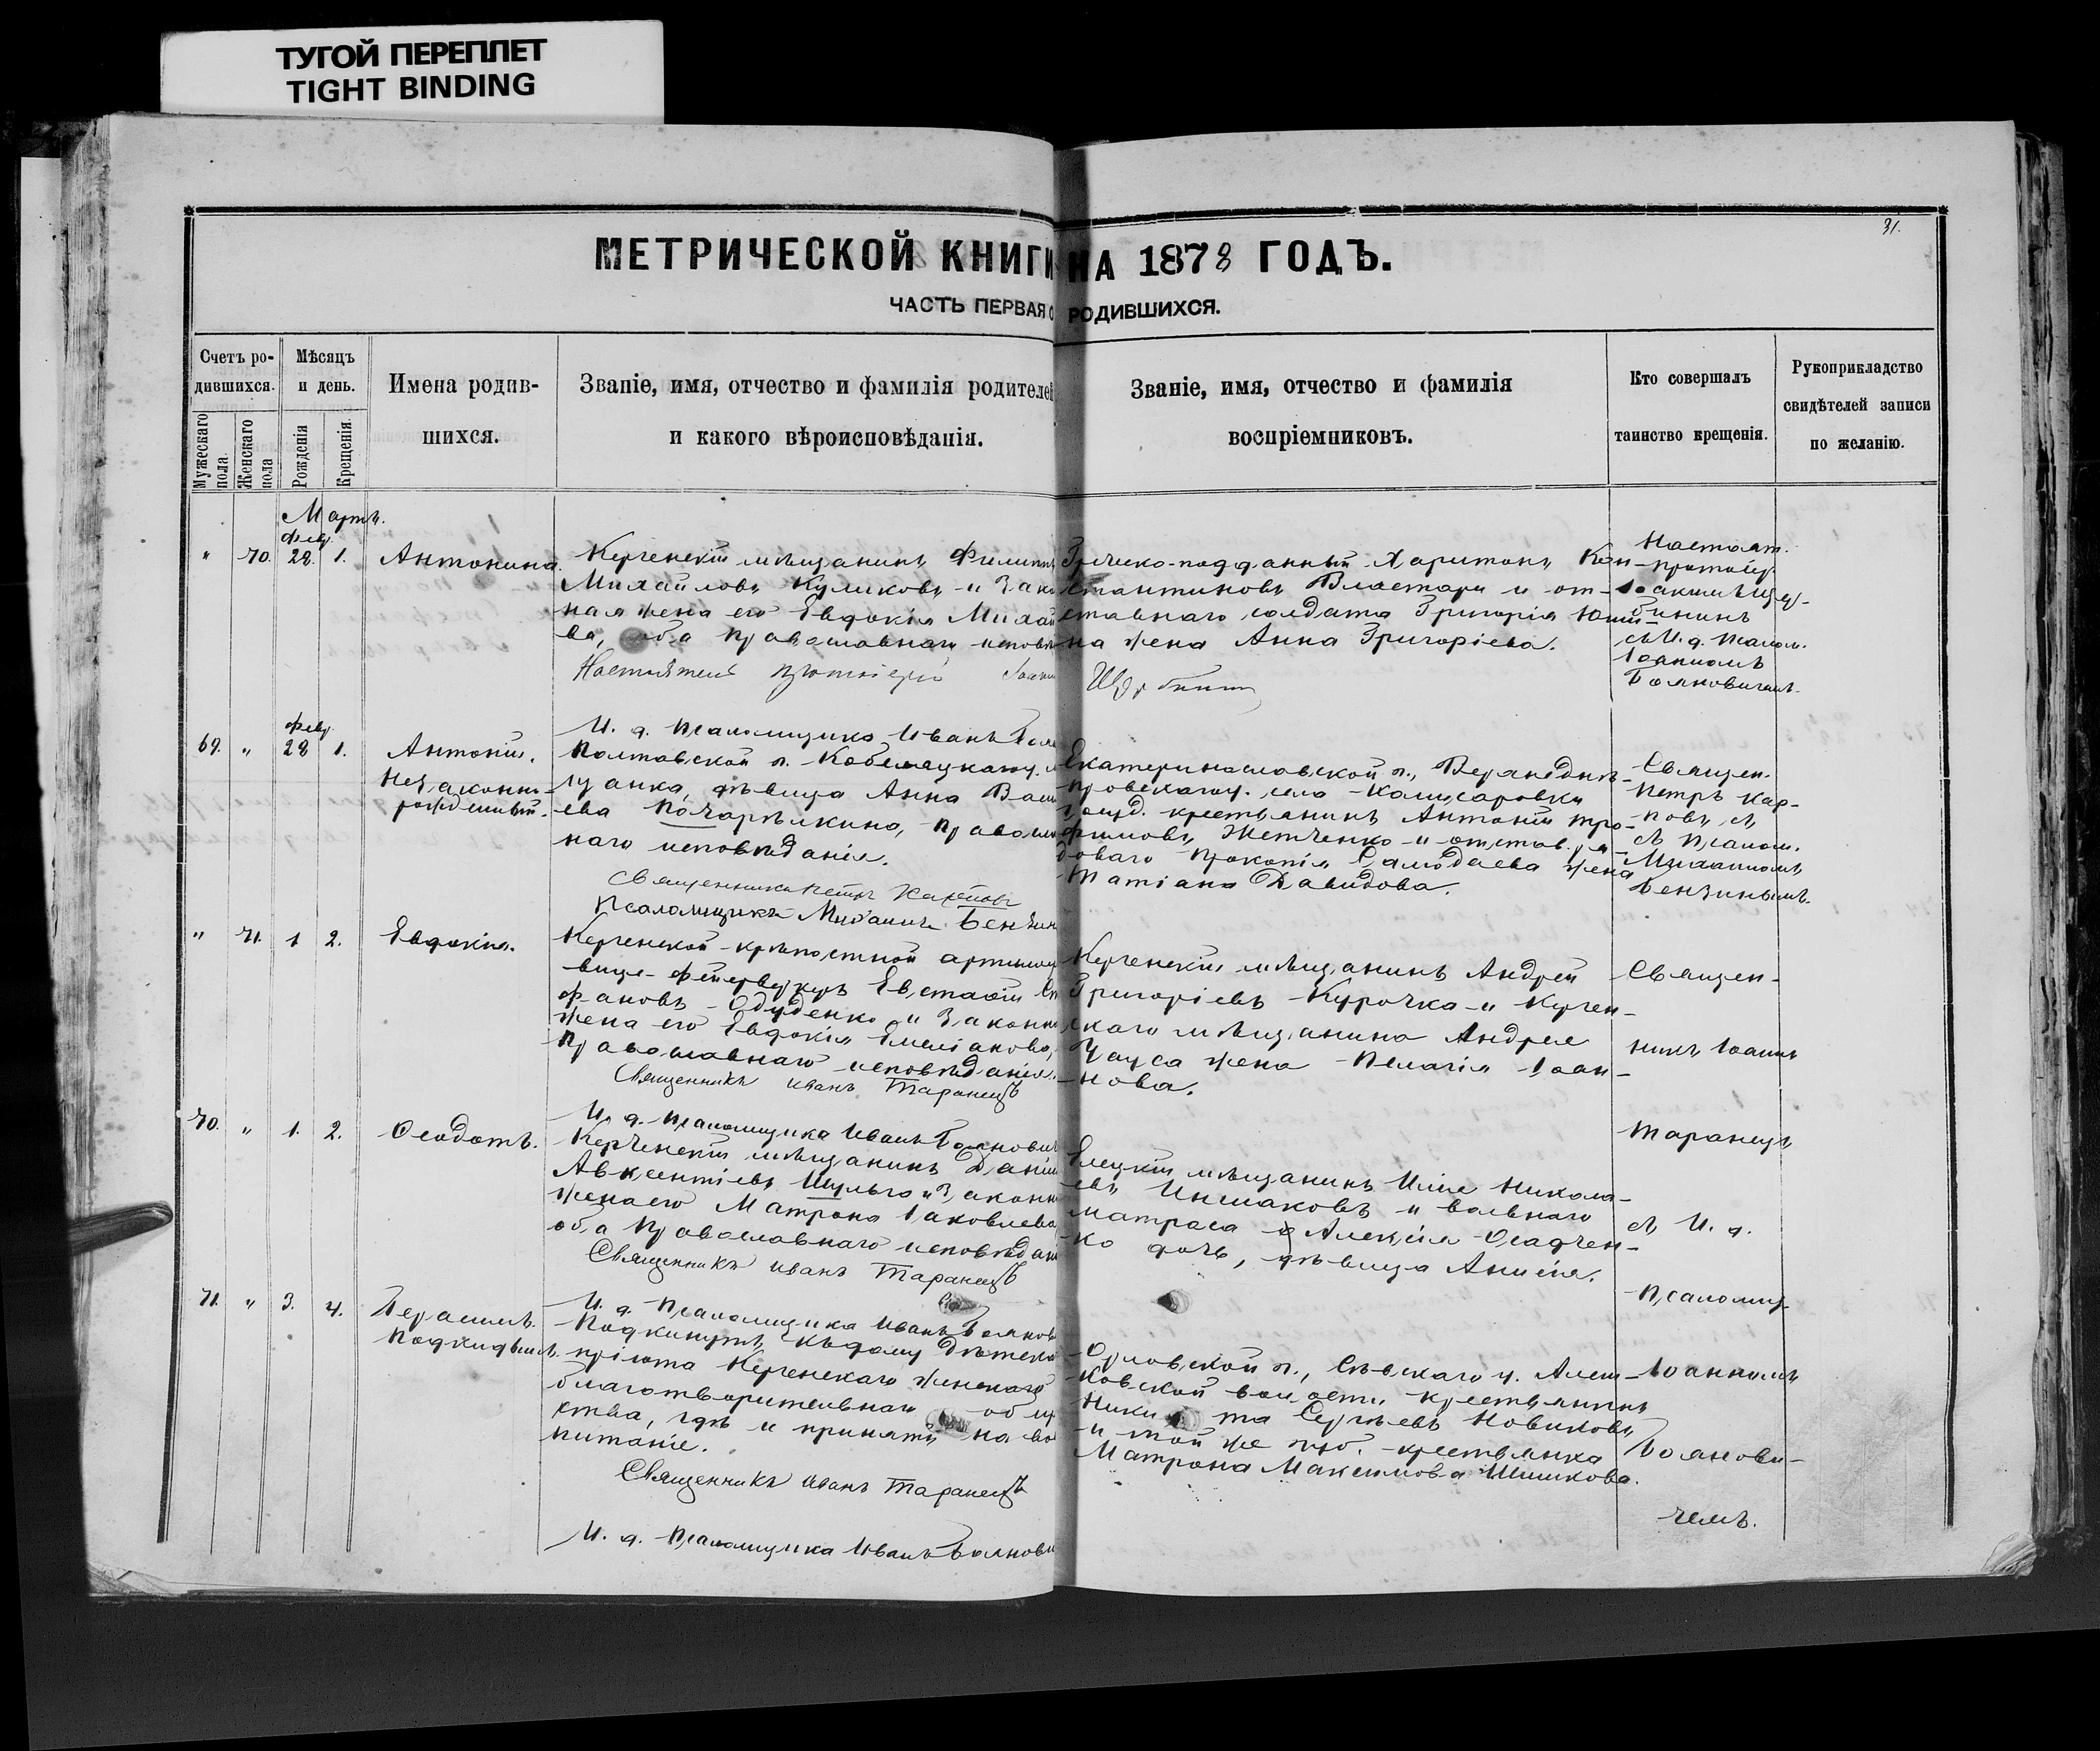 ТУГОЙ ПЕРЕПЛЕТ
TIGHT BINDING
31.
МЕТРИЧЕСКОЙ КНИГИ НА 1878 ГОДЪ.
ЧАСТЬ ПЕРВАЯ О РОДИВШИХСЯ.
Счетъ ро-
дившихся.
Мужескаго пола.
Женскаго пола
Мѣсяцъ
и день.
Рожденія
Крещенія.
Имена родив-
шихся.
Званіе, имя, отчество и фамилія родителей
и какого вѣроисповѣданія.
Званіе, имя, отчество и фамилія
воспріемниковъ.
Кто совершалъ
таинство крещенія.
Рукоприкладство
свидѣтелей записи
по желанію.
Мартъ.
февр.
" 70. 28. 1. Антонина.
Керченскій мѣщанинъ Филиппъ
Михайловъ Куликовъ и зако
ная жена его Евдокія Михай
ва, оба православнаго исповѣ
Настоятель протоіерей Іоанн
Греческо-подданный Харитонъ Кон-
стантиновъ Властари и от-
ставнаго солдата Григорія
на жена Анна Григоріева.
Настоят.
протоіер.
съ И. д. псалом.
Іоанномъ
Бояновичемъ.
И. д. псаломщика Иванъ Боян
февр.
69. " 28 1. Антоній.
Незаконно-
рожденный.
Полтавской г. Кобелякскаго у.
дѣвица Анна Васи
ева Почарѣлкина, православ
наго исповѣданія.
Священникъ Петръ Карповъ
Псаломщикъ Михаилъ Бензин
Екатеринославской г., Верхнеднѣ-
провскаго у. села Комисаровки
госуд. крестьянинъ Антоній Тро-
фимовъ Жетченко и отстав. ря-
доваго Прокопія Самодаева жена
Татіана Давидова.
Священ.
Петръ Кар-
повъ, съ
псалом.
Михаиломъ
Бензинымъ.
" 71. 1 2. Евдокія.
Керченской крѣпостной артилле
вице-фейерверкеръ Евстафій Сте
фановъ Одуденко и законн
жена его Евдокія Емеліанова,
православнаго исповѣданія.
Священникъ Иванъ Таранецъ
И. д. псаломщика Иванъ Боянови
Керченскій мѣщанинъ Андрей
Григоріевъ Курочка и Керчен-
скаго мѣщанина Андрея
Чауса жена Пелагія Іоан-
нова.
Священ-
никъ Іоаннъ
Таранецъ
съ И. д.
псаломщ.
Іоанномъ
Боянови-
чемъ.
70. " 1. 2. Ѳеодотъ.
Керченскій мѣщанинъ Даніи
Авксентіевъ Шульга и законн
жена его Матрона Іаковлева
оба православнаго исповѣдан
Священникъ Иванъ Таранецъ
И. д. псаломщика Иванъ Боянов
Елецкій мѣщанинъ Илія Никола-
евъ Иншаковъ и вольнаго
матроса Алексія Осадчен-
ко дочь, дѣвица Анисія.
71. " 3. 4. Герасимъ.
Подкидышъ.
Подкинутъ къ дому Дѣтска
пріюта Керченскаго женскаго
благотворительнаго общ
ства, гдѣ и принятъ на во
питаніе.
Священникъ Иванъ Таранецъ
И. д. псаломщика Иванъ Боянови
Орловской г., Сѣвскаго у. Алеш-
ковской волости крестьянинъ
Никита Сергѣевъ Новиковъ
и той же губ. крестьянка
Матрона Максимова Шишкова.